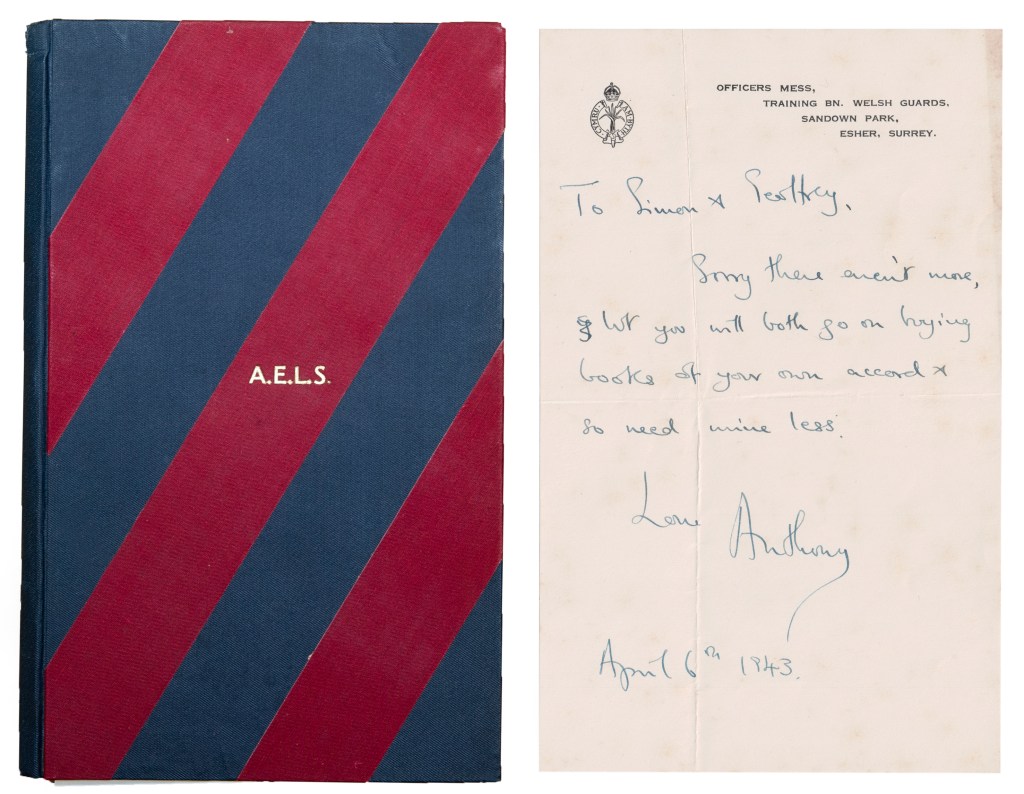 A.E.L.S.
OFFICERS MESS,
TRAINING BN. WELSH GUARDS,
SANDOWN PARK,
ESHER, SURREY.
CYMRU AM BYTH
To Simon & Geoffrey,
Sorry there aren't more,
but you will both go on buying
books of your own accord &
so need mine less.
Love Anthony
April 6th 1943.